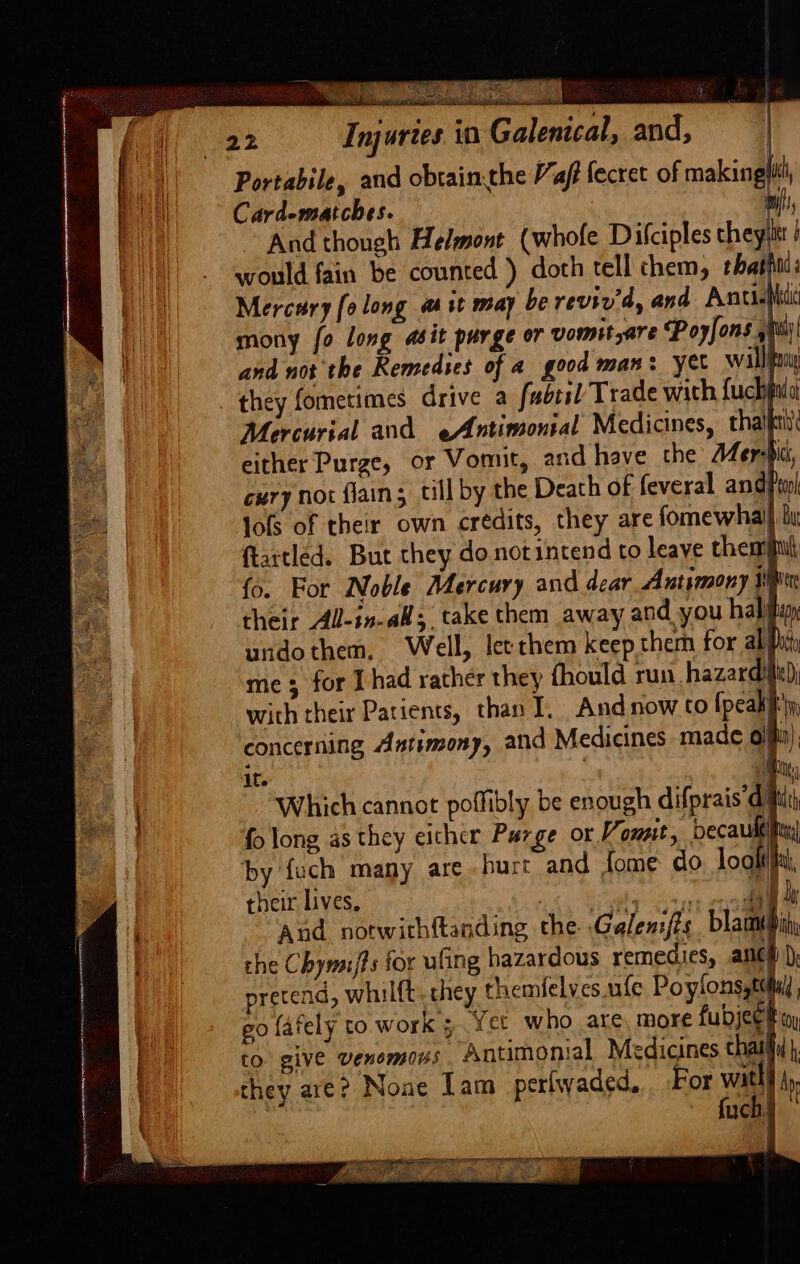 22 Injuries in Galenical, and,
Portabile, and obtain the Vast secret of making
Card-matches.
And though Helmont (whose Disciples they
would fain be counted) doth tell them, that
Mercury so long as it may be reviv'd, and Anti-
mony so long as it purge or vomit, are Poysons,
and not the Remedies of a good man: yet will
they sometimes drive a subtil Trade with such
Mercurial and Antimonial Medicines, that
either Purge, or Vomit, and have the Mer-
cury not slain; till by the Death of several and
loss of their own credits, they are somewhat
startled. But they do not intend to leave them
so. For Noble Mercury and dear Antimony
their All-in-all; take them away and you half
undo them. Well, let them keep them for all
me; for I had rather they should run hazard
with their Patients, than I. And now to speak
concerning Antimony, and Medicines made of
it.
Which cannot possibly be enough disprais'd
so long as they either Purge or Vomit, because
by such many are hurt and some do loose
their lives.
And notwithstanding the Galenists blame
the Chymists for using hazardous remedies, and
pretend, whilst they themselves use Poysons, to
go safely to work; Yet who are more subject
to give venomous Antimonial Medicines than
they are? None I am perswaded. For with
such